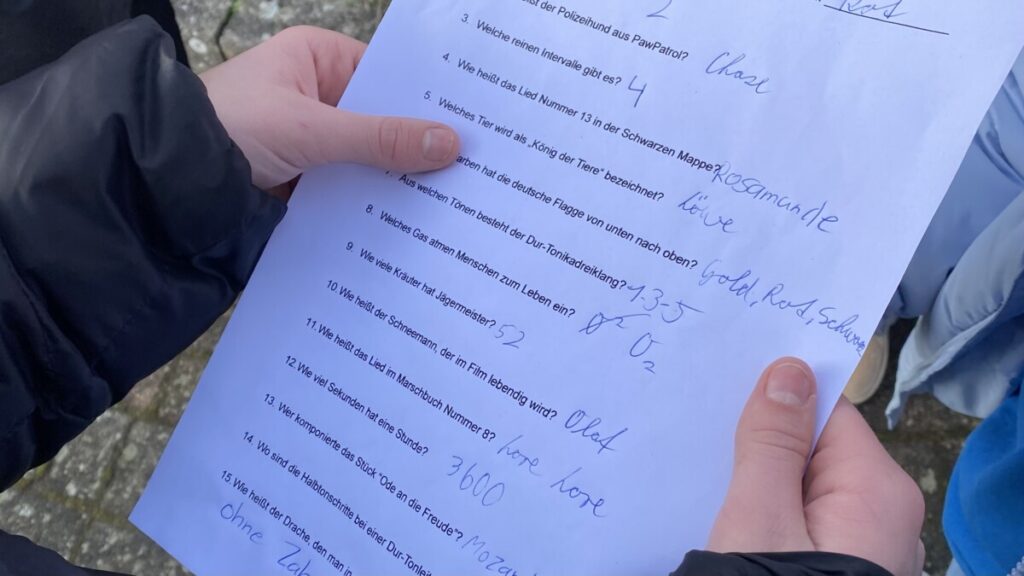 Rot
ißt der Polizeihund aus PawPatrol? Chase
2
3. Welche reinen Intervalle gibt es? 4
4. Wie heißt das Lied Nummer 13 in der Schwarzen Mappe? Rosamunde
5. Welches Tier wird als „König der Tiere“ bezeichnet? Löwe
arben hat die deutsche Flagge von unten nach oben? Gold, Rot, Schwarz
7. Aus welchen Tönen besteht der Dur-Tonikadreiklang? 1-3-5
8. Welches Gas atmen Menschen zum Leben ein? O₂
9. Wie viele Kräuter hat Jägermeister? 52
10. Wie heißt der Schneemann, der im Film lebendig wird? Olaf
11. Wie heißt das Lied im Marschbuch Nummer 8? Lore Lore
12. Wie viel Sekunden hat eine Stunde? 3600
13. Wer komponierte das Stück "Ode an die Freude"? Mozar
14. Wo sind die Halbtonschritte bei einer Dur-Tonleit
15. Wie heißt der Drache, den man in
ohne Zah